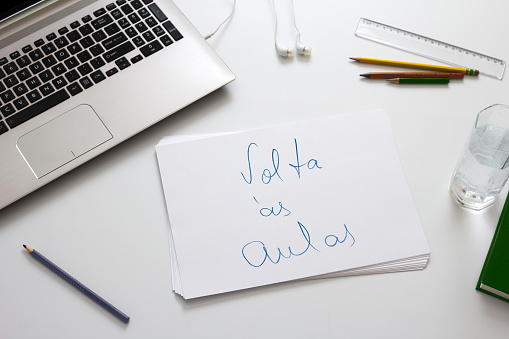 Volta
às
aulas